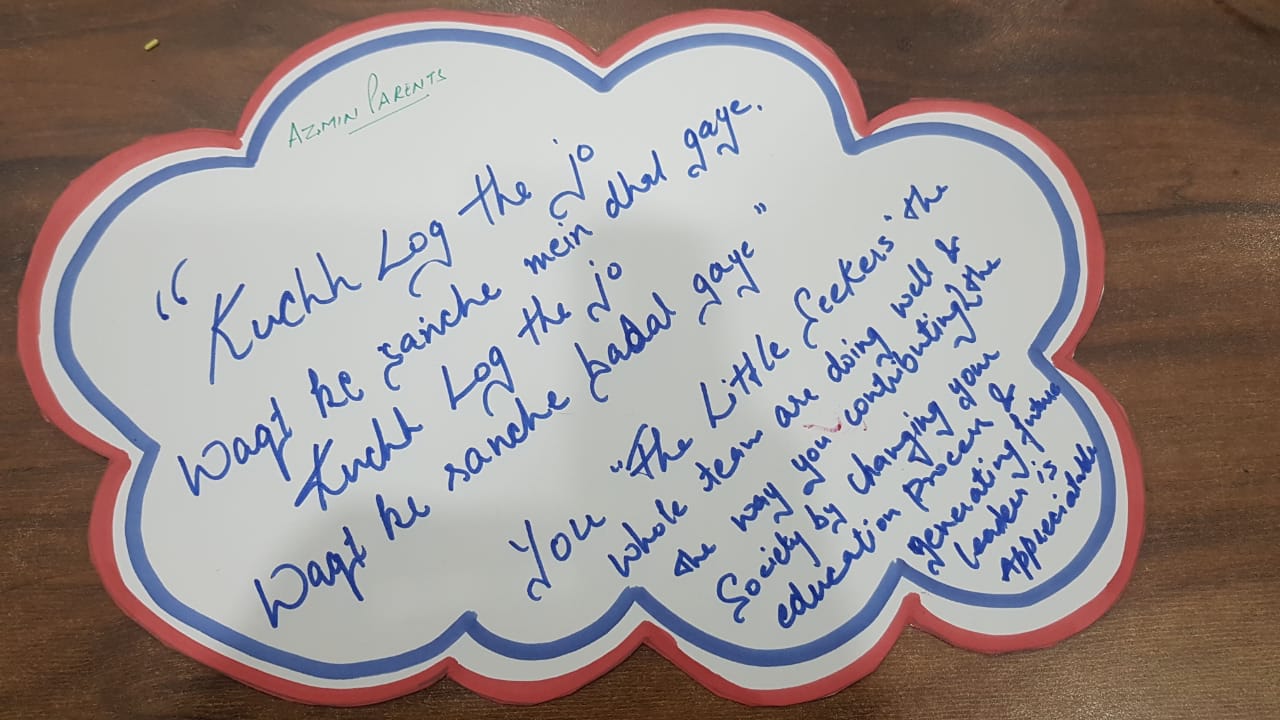 AZIMIN PARENTS
"Kuchh Log the jo
waqt ke sanche mein dhal gaye.
Kuchh Log the jo
waqt ke sanche badal gaye"
You "The Little Seekers" the
whole team are doing well &
the way you contributing the
Society by changing your
education process &
generating future
leaders is
appreciatable